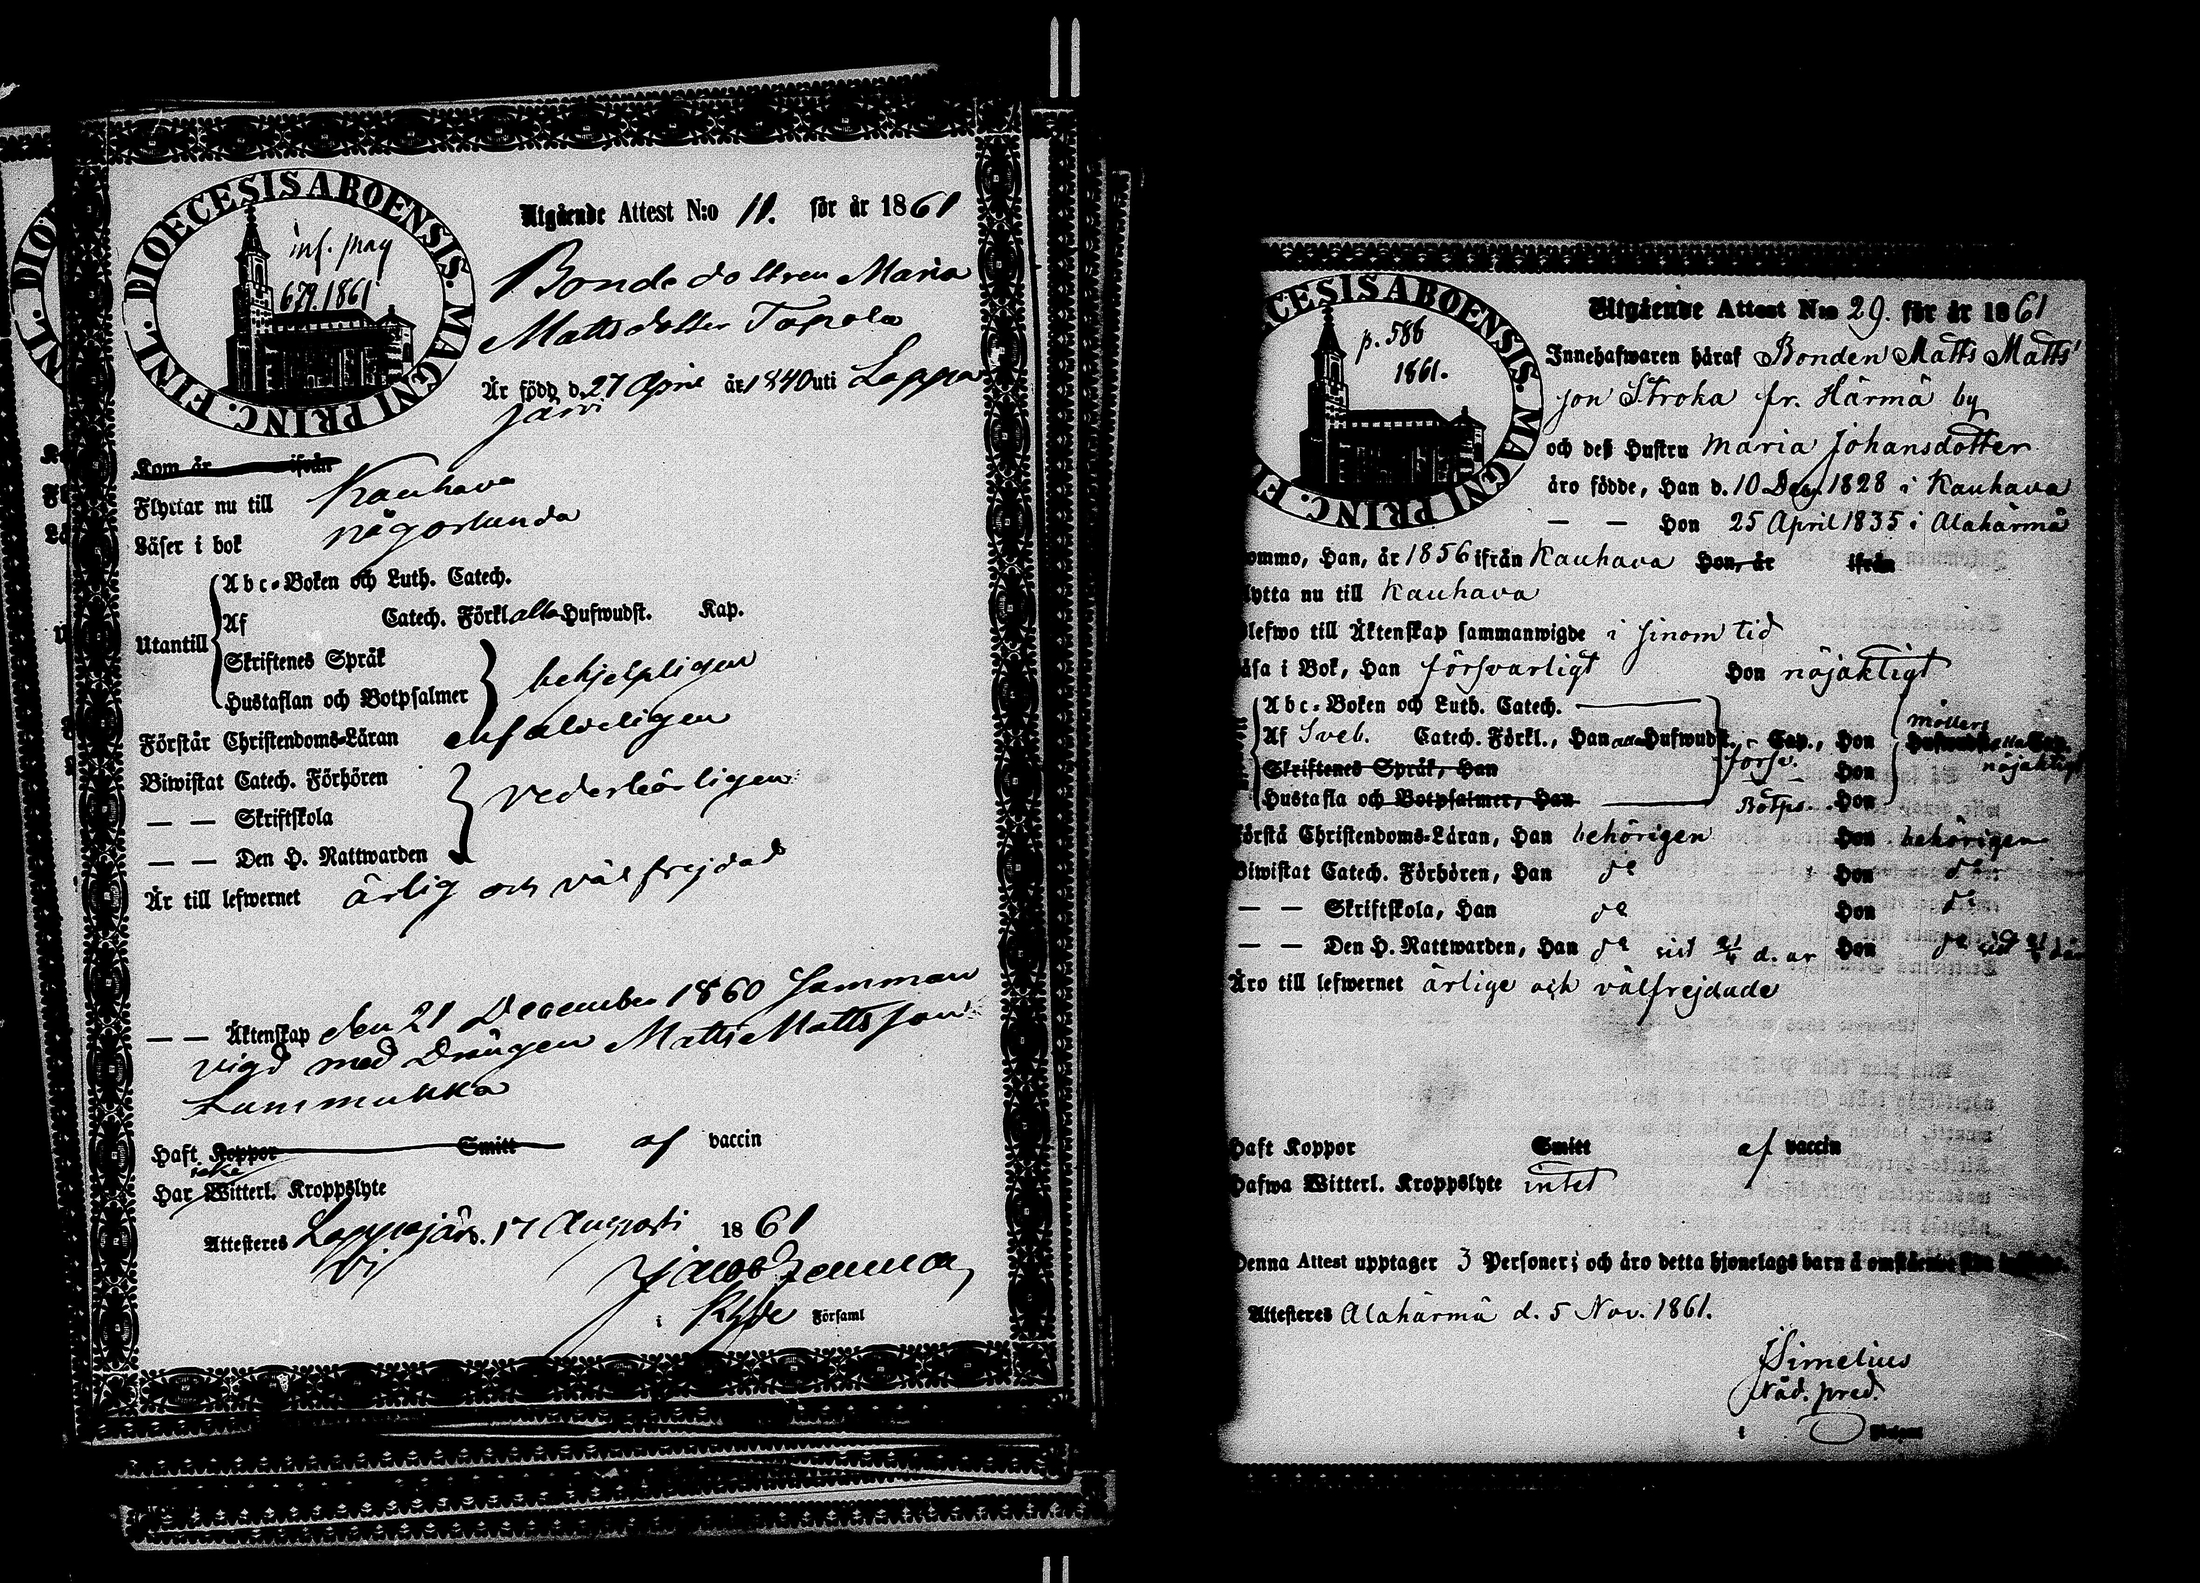 DIOECESIS ABOENSIS. MAGNI PRINC. FINL.
inf. pag
679. 1861
Utgående Attest N:o 11. för år 1861
Bondedottren Maria
Mattsdotter Topola
Är född d. 27 April år 1840 uti Lappa
järvi
Kom år ifrån
Flyttar nu till Kauhava
Läser i bok någorlunda
Utantill
Abc-Boken och Luth. Catech.
Af Catech. Förkl alla Hufwudst. Kap.
Skriftenes Språk
Hustaflan och Botpsalmer
behjelpligen
Förstår Christendoms-Läran enfaldeligen
Biwistat Catech. Förhören
— — Skriftskola
— — Den H. Nattwarden
vederbörligen
Är till lefwernet ärlig och välfrejdad
— — Äktenskap den 21 December 1860 Samman
vigd med Drängen Matts Mattsson
Lammukka
Haft Koppor Smitt af vaccin
icke
Har Witterl. Kroppslyte
Attesteres Lappajärvi 17 Augusti 1861
i Församl
DIOECESIS ABOENSIS. MAGNI PRINC. FI
p. 586
1861.
Utgående Attest N:o 29. för år 1861
Innehafwaren häraf Bonden Matts Matts
son Stroka fr. Härmä by
och deß Hustru Maria Johansdotter
äro födde, Han d. 10 Dec. 1828 i Kauhava
— — Hon 25 April 1835 i Alahärmä
ommo, Han, år 1856 ifrån Kauhava Hon, år ifrån
lytta nu till Kauhava
lefwo till Äktenskap sammanwigde i sinom tid
äsa i Bok, Han försvarligt Hon nöjaktigt
Abc-Boken och Luth. Catech.
Af Sveb. Catech. Förkl., Han alla Hufwudst., Cap., Hon Möllers
Skriftenes Språk, Han försv. Hon nöjaktigt
Hustafla och Botpsalmer, Han Botps. Hon
örstå Christendoms-Läran, Han behörigen Hon behörigen
Biwistat Catech. Förhören, Han do Hon do
— — Skriftskola, Han do Hon do
— — Den H. Nattwarden, Han do sist d. år Hon do sist
Äro till lefwernet ärlige och välfrejdade
Haft Koppor Smitt af vaccin
Hafwa Witterl. Kroppslyte intet
Denna Attest upptager 3 Personer; och äro detta hjonelags barn å omstående
Attesteres Alahärmä d. 5 Nov. 1861.
JSimelius
Nåd. pred.
i